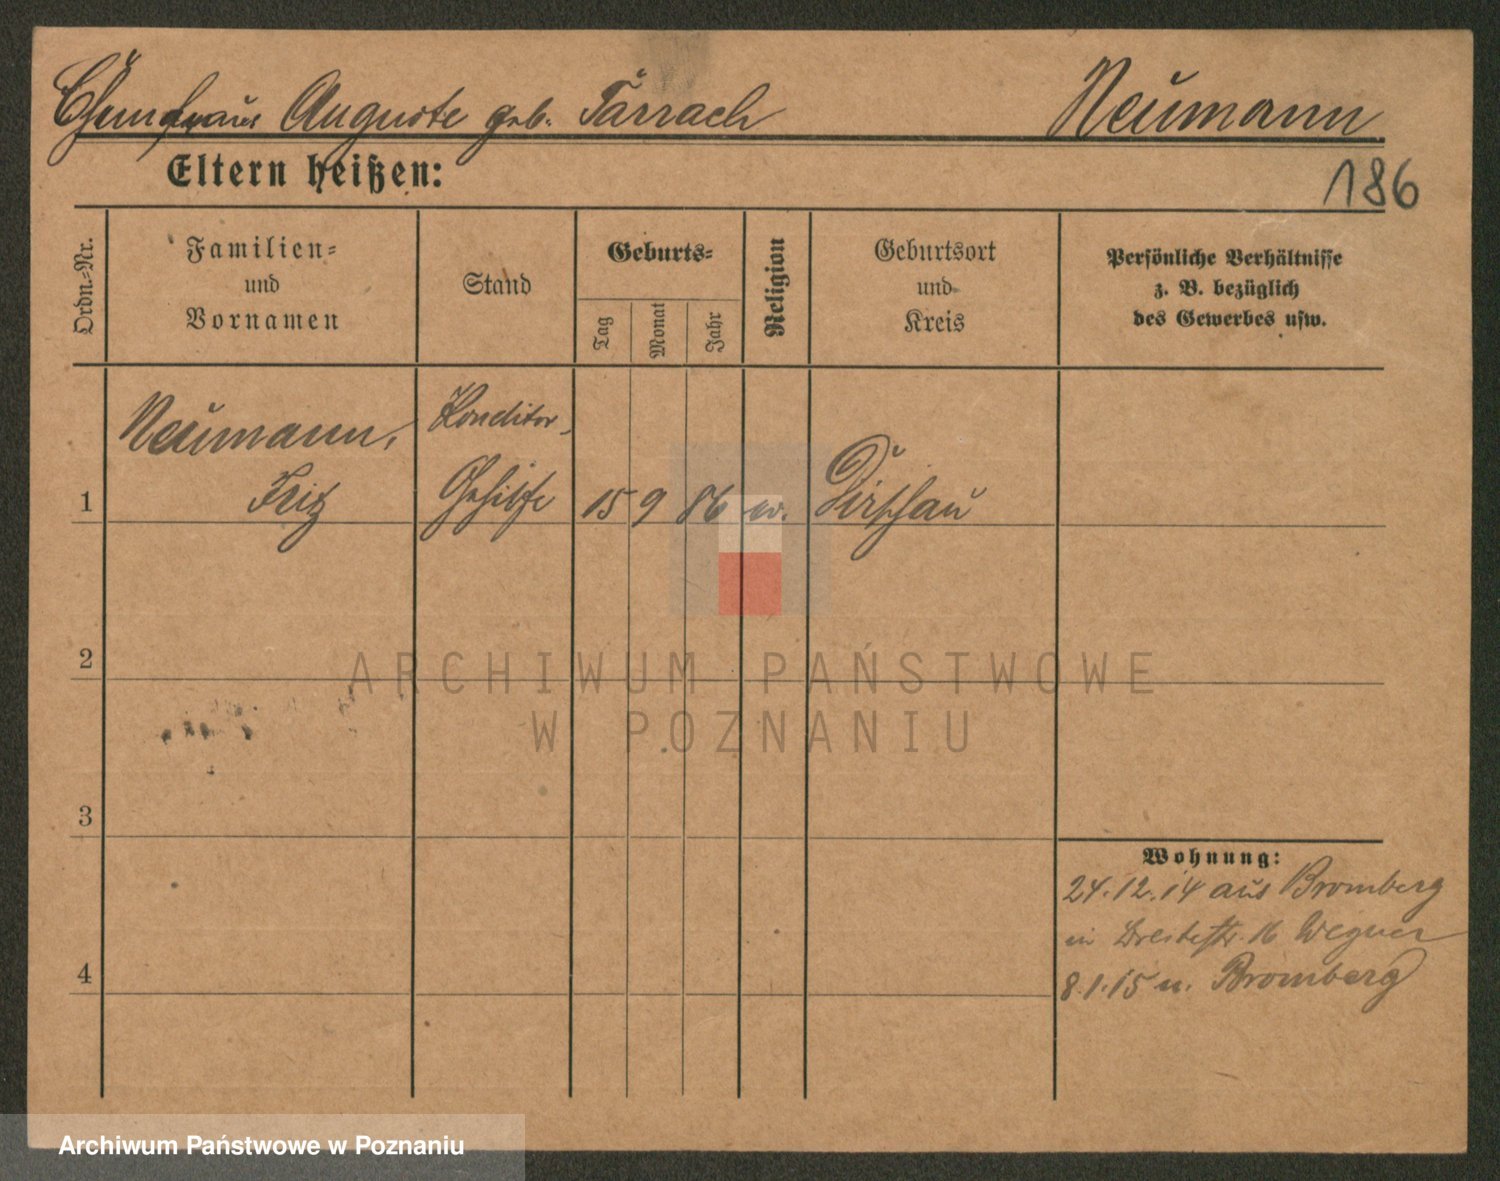 Auguste geb. Tarrach Neumann
Eltern heißen:
186
Ordn.=Nr.
Familien=
und
Vornamen
Stand
Geburts=
Tag
Monat
Jahr
Religion
Geburtsort
und
Kreis
Persönliche Verhältnisse
z. B. bezüglich
des Gewerbes usw.
Neumann,
Fritz
Konditor-
Gehilfe
1
15 9 86 ev. Dirschau
2
3
4
Wohnung:
24.12.14 aus Bromberg
in 16 Wegner
8.1.15 n. Bromberg
ARCHIWUM PAŃSTWOWE
W POZNANIU
Archiwum Państwowe w Poznaniu